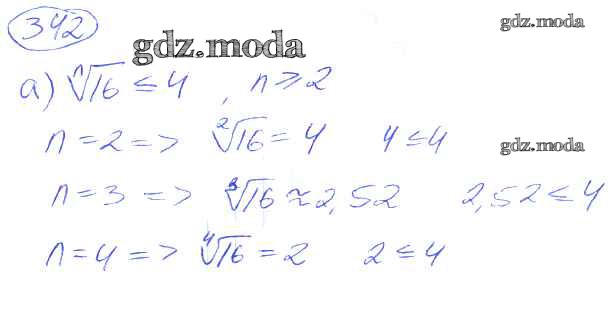 342
gdz.moda
gdz.moda
а) ⁿ√16 ≤ 4, n ≥ 2
n = 2 => ²√16 = 4 4 ≤ 4
gdz.moda
n = 3 => ³√16 ≈ 2,52 2,52 ≤ 4
n = 4 => ⁴√16 = 2 2 ≤ 4